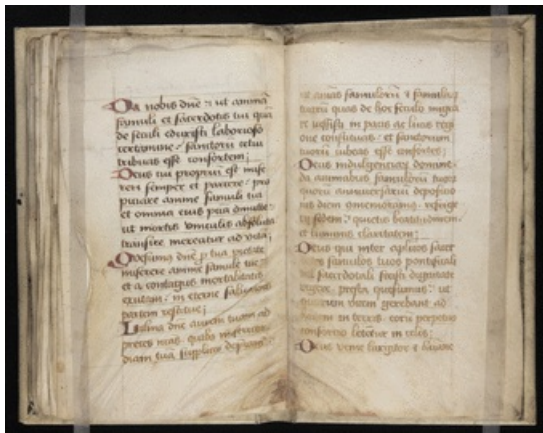 Da nobis dne : ut animã
famuli et sacerdotis tui quã
de seculi eduxisti laborioso
certamine sanctorũ cetui
tribuas esse consortem ;
Deus cui propriũ est mise
reri semper et parcere pro
piciare anime famuli tui
et omnia eius pcta dimitte
ut mortis vinculis absoluta
transire mereatur ad vitã ;
Quesumus dne p tua pietate
miserere anime famule tue
et a contagiis mortalitatis
exutam in eterne saluationis
partem restitue ;
Inclina dne aurem tuam ad
preces nras quibȝ misericor
diam tuã supplices deprecam
ut aĩas famulorũ et famularũ
tuarũ quas de hoc seculo migra
re iussisti in pacis ac lucis regi
one constituas et sanctorum
tuorũ iubeas esse consortes ;
Deus indulgenciarũ domine
da animabus famulorũ tuorũ
quorũ anniversariũ deposicio
nis diem cõmemoramȝ refrige
rij sedem quietis beatitudinem
et luminis claritatem ;
Deus qui inter aplicos sacer
dotes famulos tuos pontificali
seu sacerdotali fecisti dignitate
vigere presta quesumus ut
quorum vicem gerebant ad
horam in terris eorũ perpetuo
consorcio letentur in celis ;
Deus venie largitor et humane